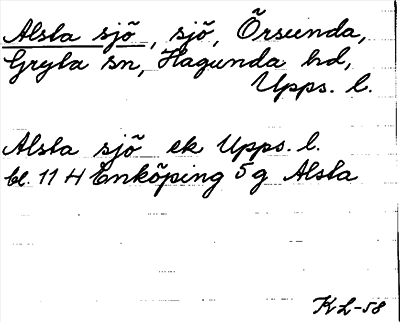 Alsta sjö, sjö, Örsunda,
Gryta sn, Hagunda hd,
Upps. l.
Alsta sjö ek Upps. l.
bl. 11 H Enköping 5 g Alsta
KL-58